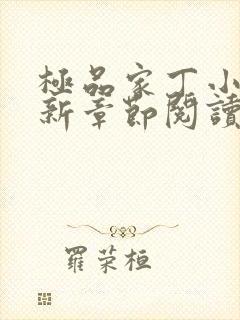 極品家丁小
新章節閱讀
羅荣桓